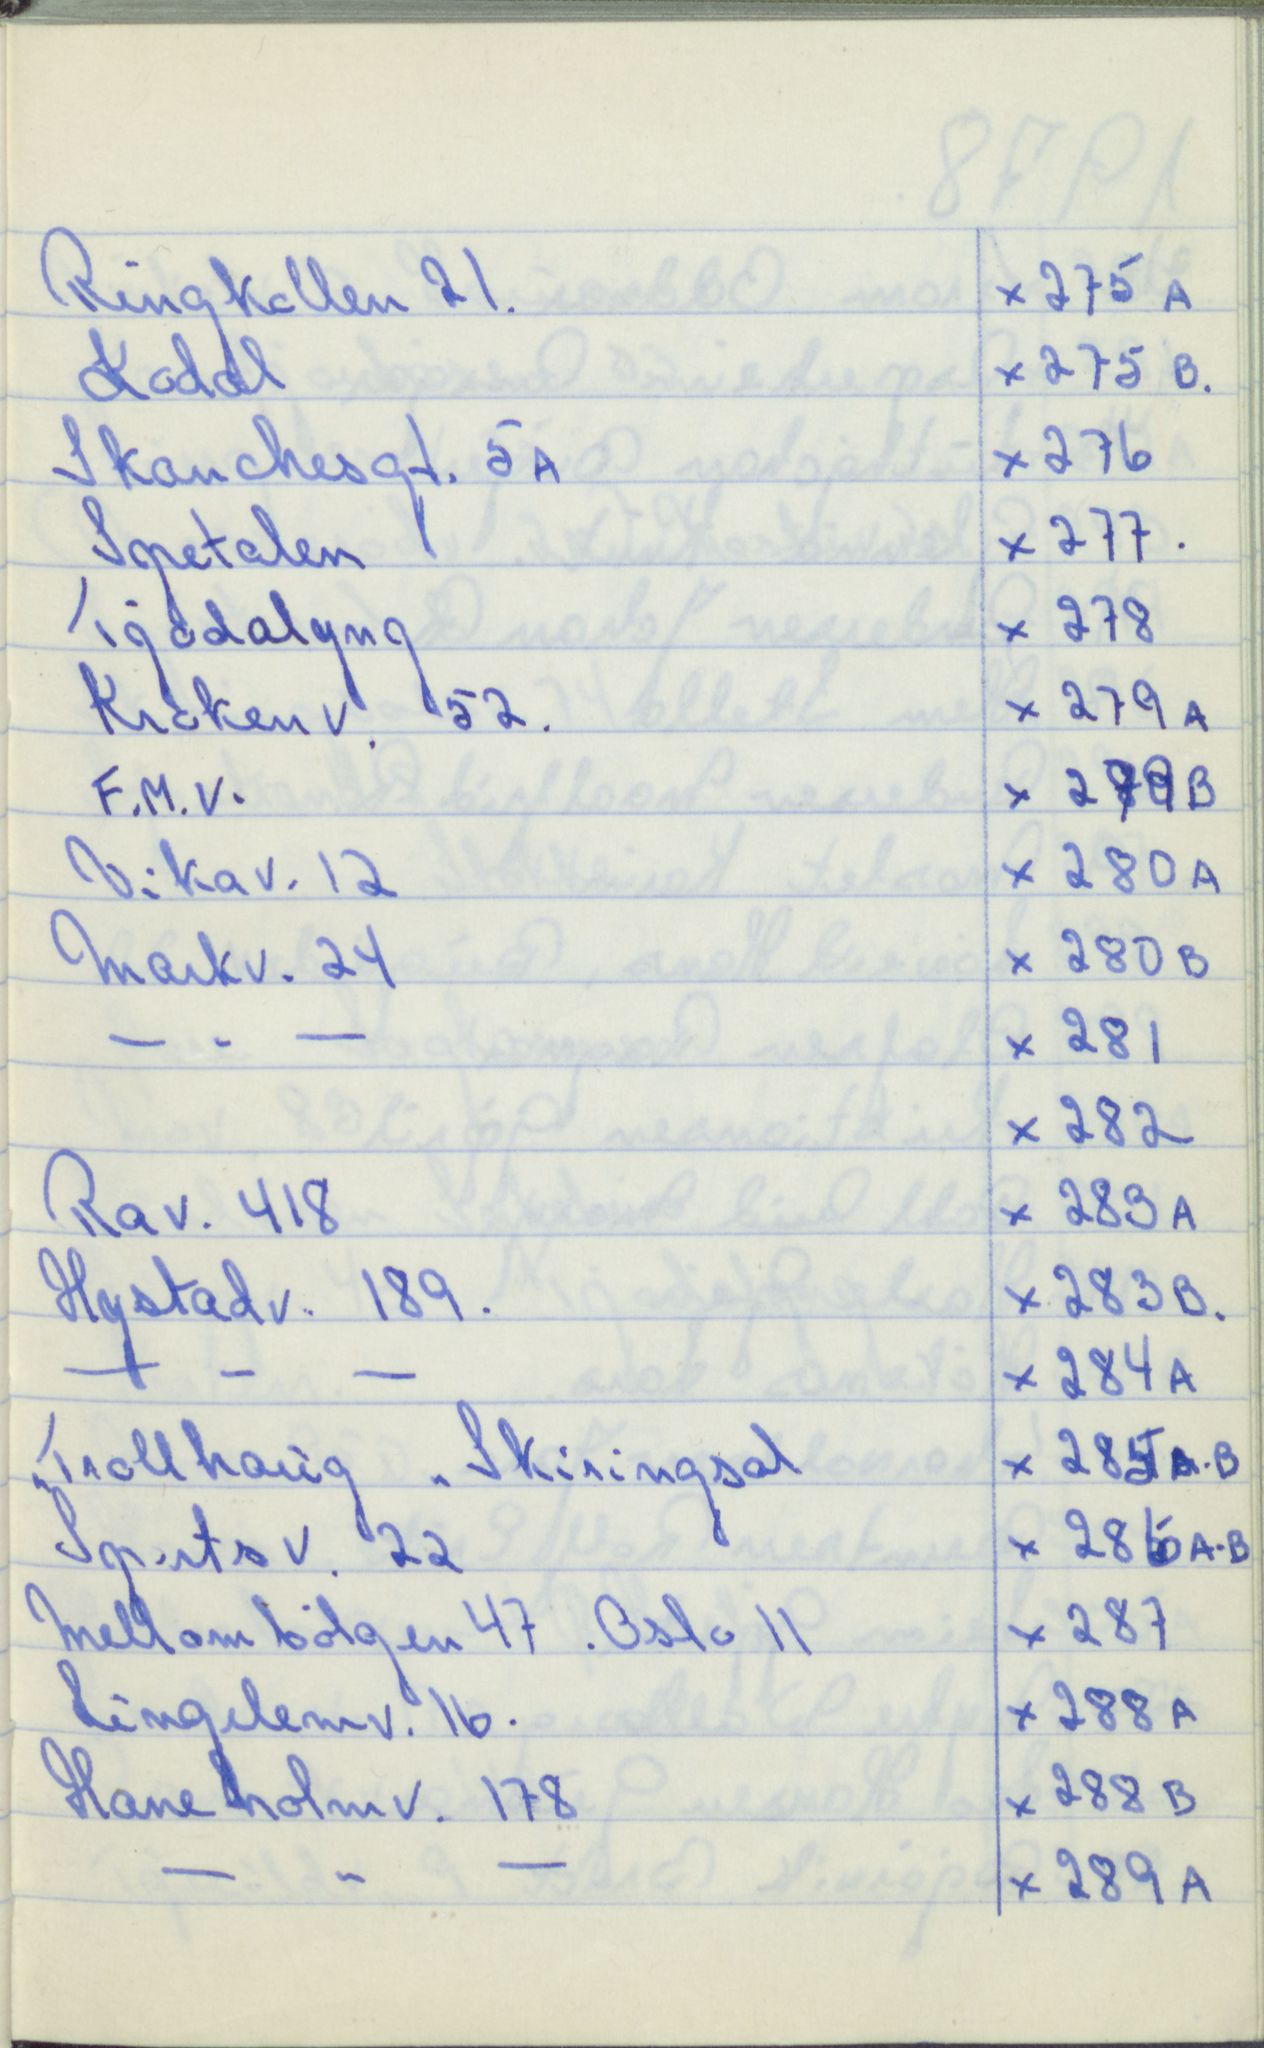 Ringkollen 21. x 275 A
Kodal x 275 B.
Skanchesgt. 5A x 276
Spetalen x 277.
Tjødalyng x 278
Krokenv. 52. x 279 A
F.M.V. x 279 B
Vikav. 12 x 280 A
Markv. 24 x 280 B
— " — x 281
x 282
Rav. 418 x 283 A
Hystadv. 189. x 283 B.
— " — x 284 A
"Trollhaug" Skiringsal x 285 A-B
Sportsv. 22 x 286 A-B
Mellombølgen 47. Oslo 11 x 287
Lingelemv. 16. x 288 A
Haneholmv. 178 x 288 B
— " — x 289 A